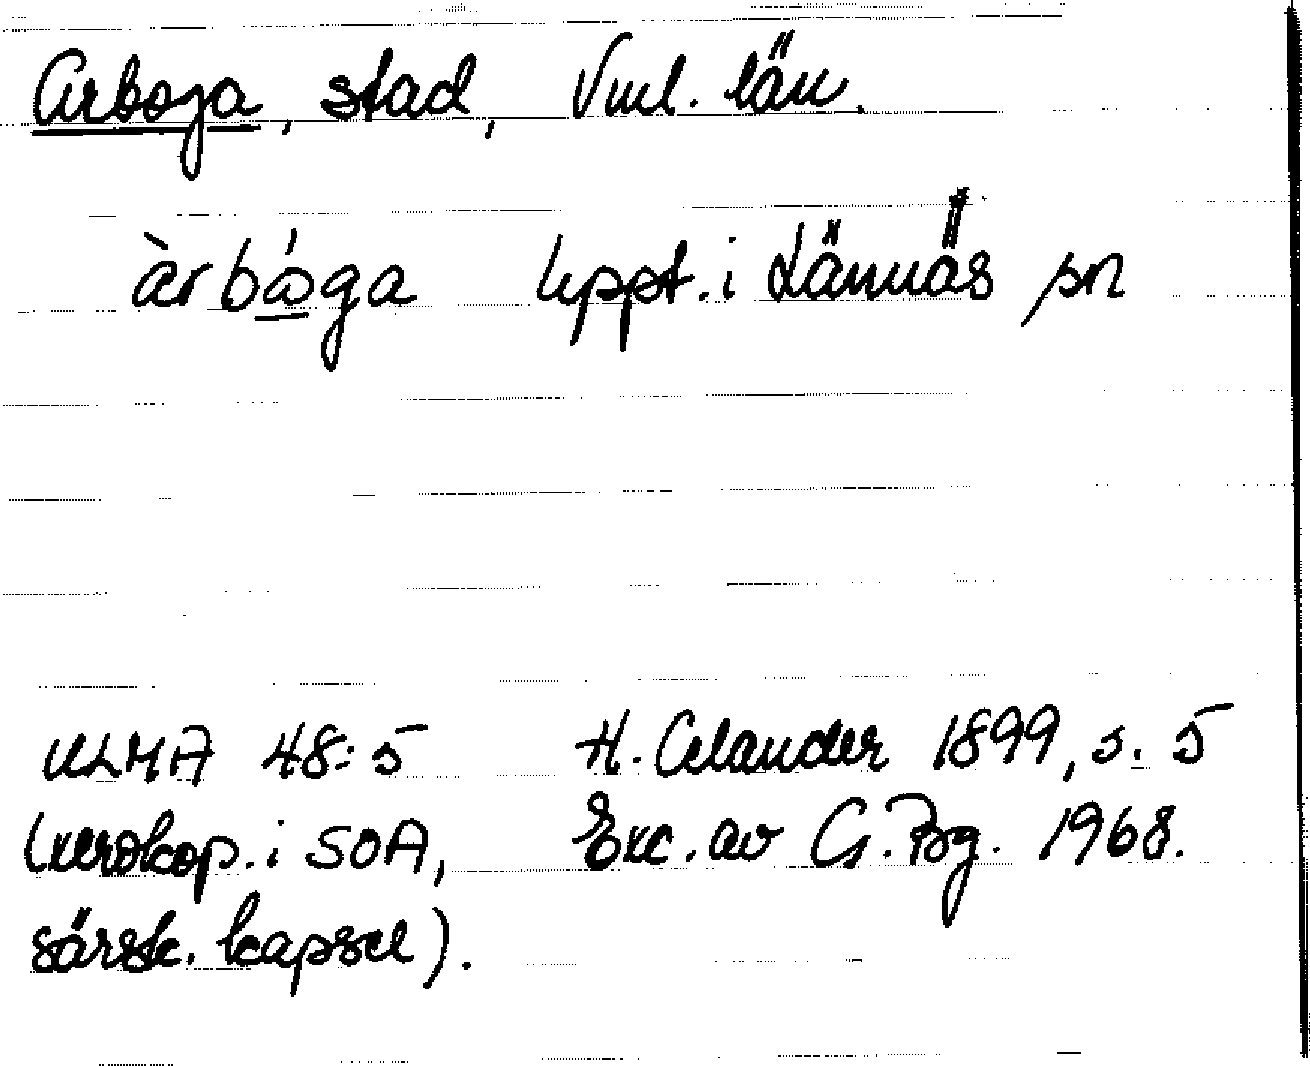 Arboga, stad, Vml. län.
àrbó̲ga uppt. i Lännäs sn
ULMA 48:5 H. Celander 1899, s. 5
(xerokop. i SOA, Exc. av G. Bg. 1968.
särsk. kapsel).